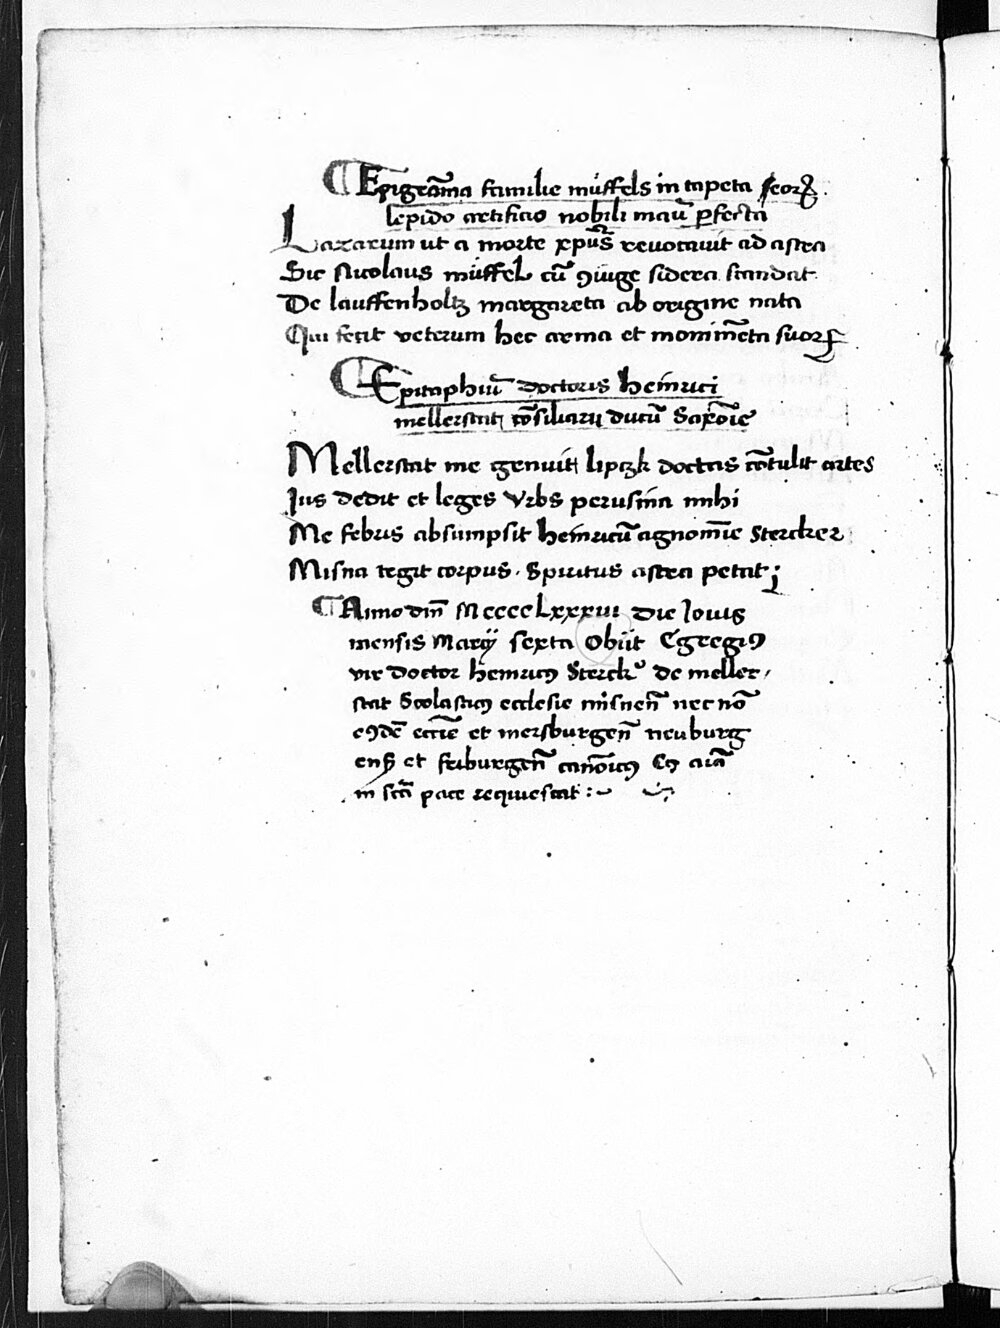 ¶ Epigram̄a familie müffels in tapeta seorꝫ
lepido artificio nobili manū ꝑfecta
Lazarum ut a morte xpūs revocavit ad astra
Sic Nicolaus müffel cū ꝯiuge sidera scandat
De lauffenholtz margareta ab origine nata
Qui fecit veterum hec arma et monim̄eta suorꝝ
¶ Epitaphiū doctoris Heinrici
mellerstat cōsiliarij ducū Saxōie
Mellerstat me genuit lipczk doctas cōtulit artes
Jus dedit et leges Vrbs perusina mihi
Me febris absumpsit Heinricū agnomīe Stercker
Misna tegit corpus . Spiritus astra petat ;
¶ Anno dn̄i Mcccclxxxiii die Jovis
mensis Marcij sexta Obiit Egregiꝰ
vir doctor Heinricꝰ Sterckˀ de meller-
stat Scolasticꝰ ecclesie misnen̄ nec nō
eꝰdē ecc̄ie et mersburgen̄ neuburg
enß et friburgen̄ can̄oicꝰ Cꝰ aīa
in sc̄ā pace requiescat :~